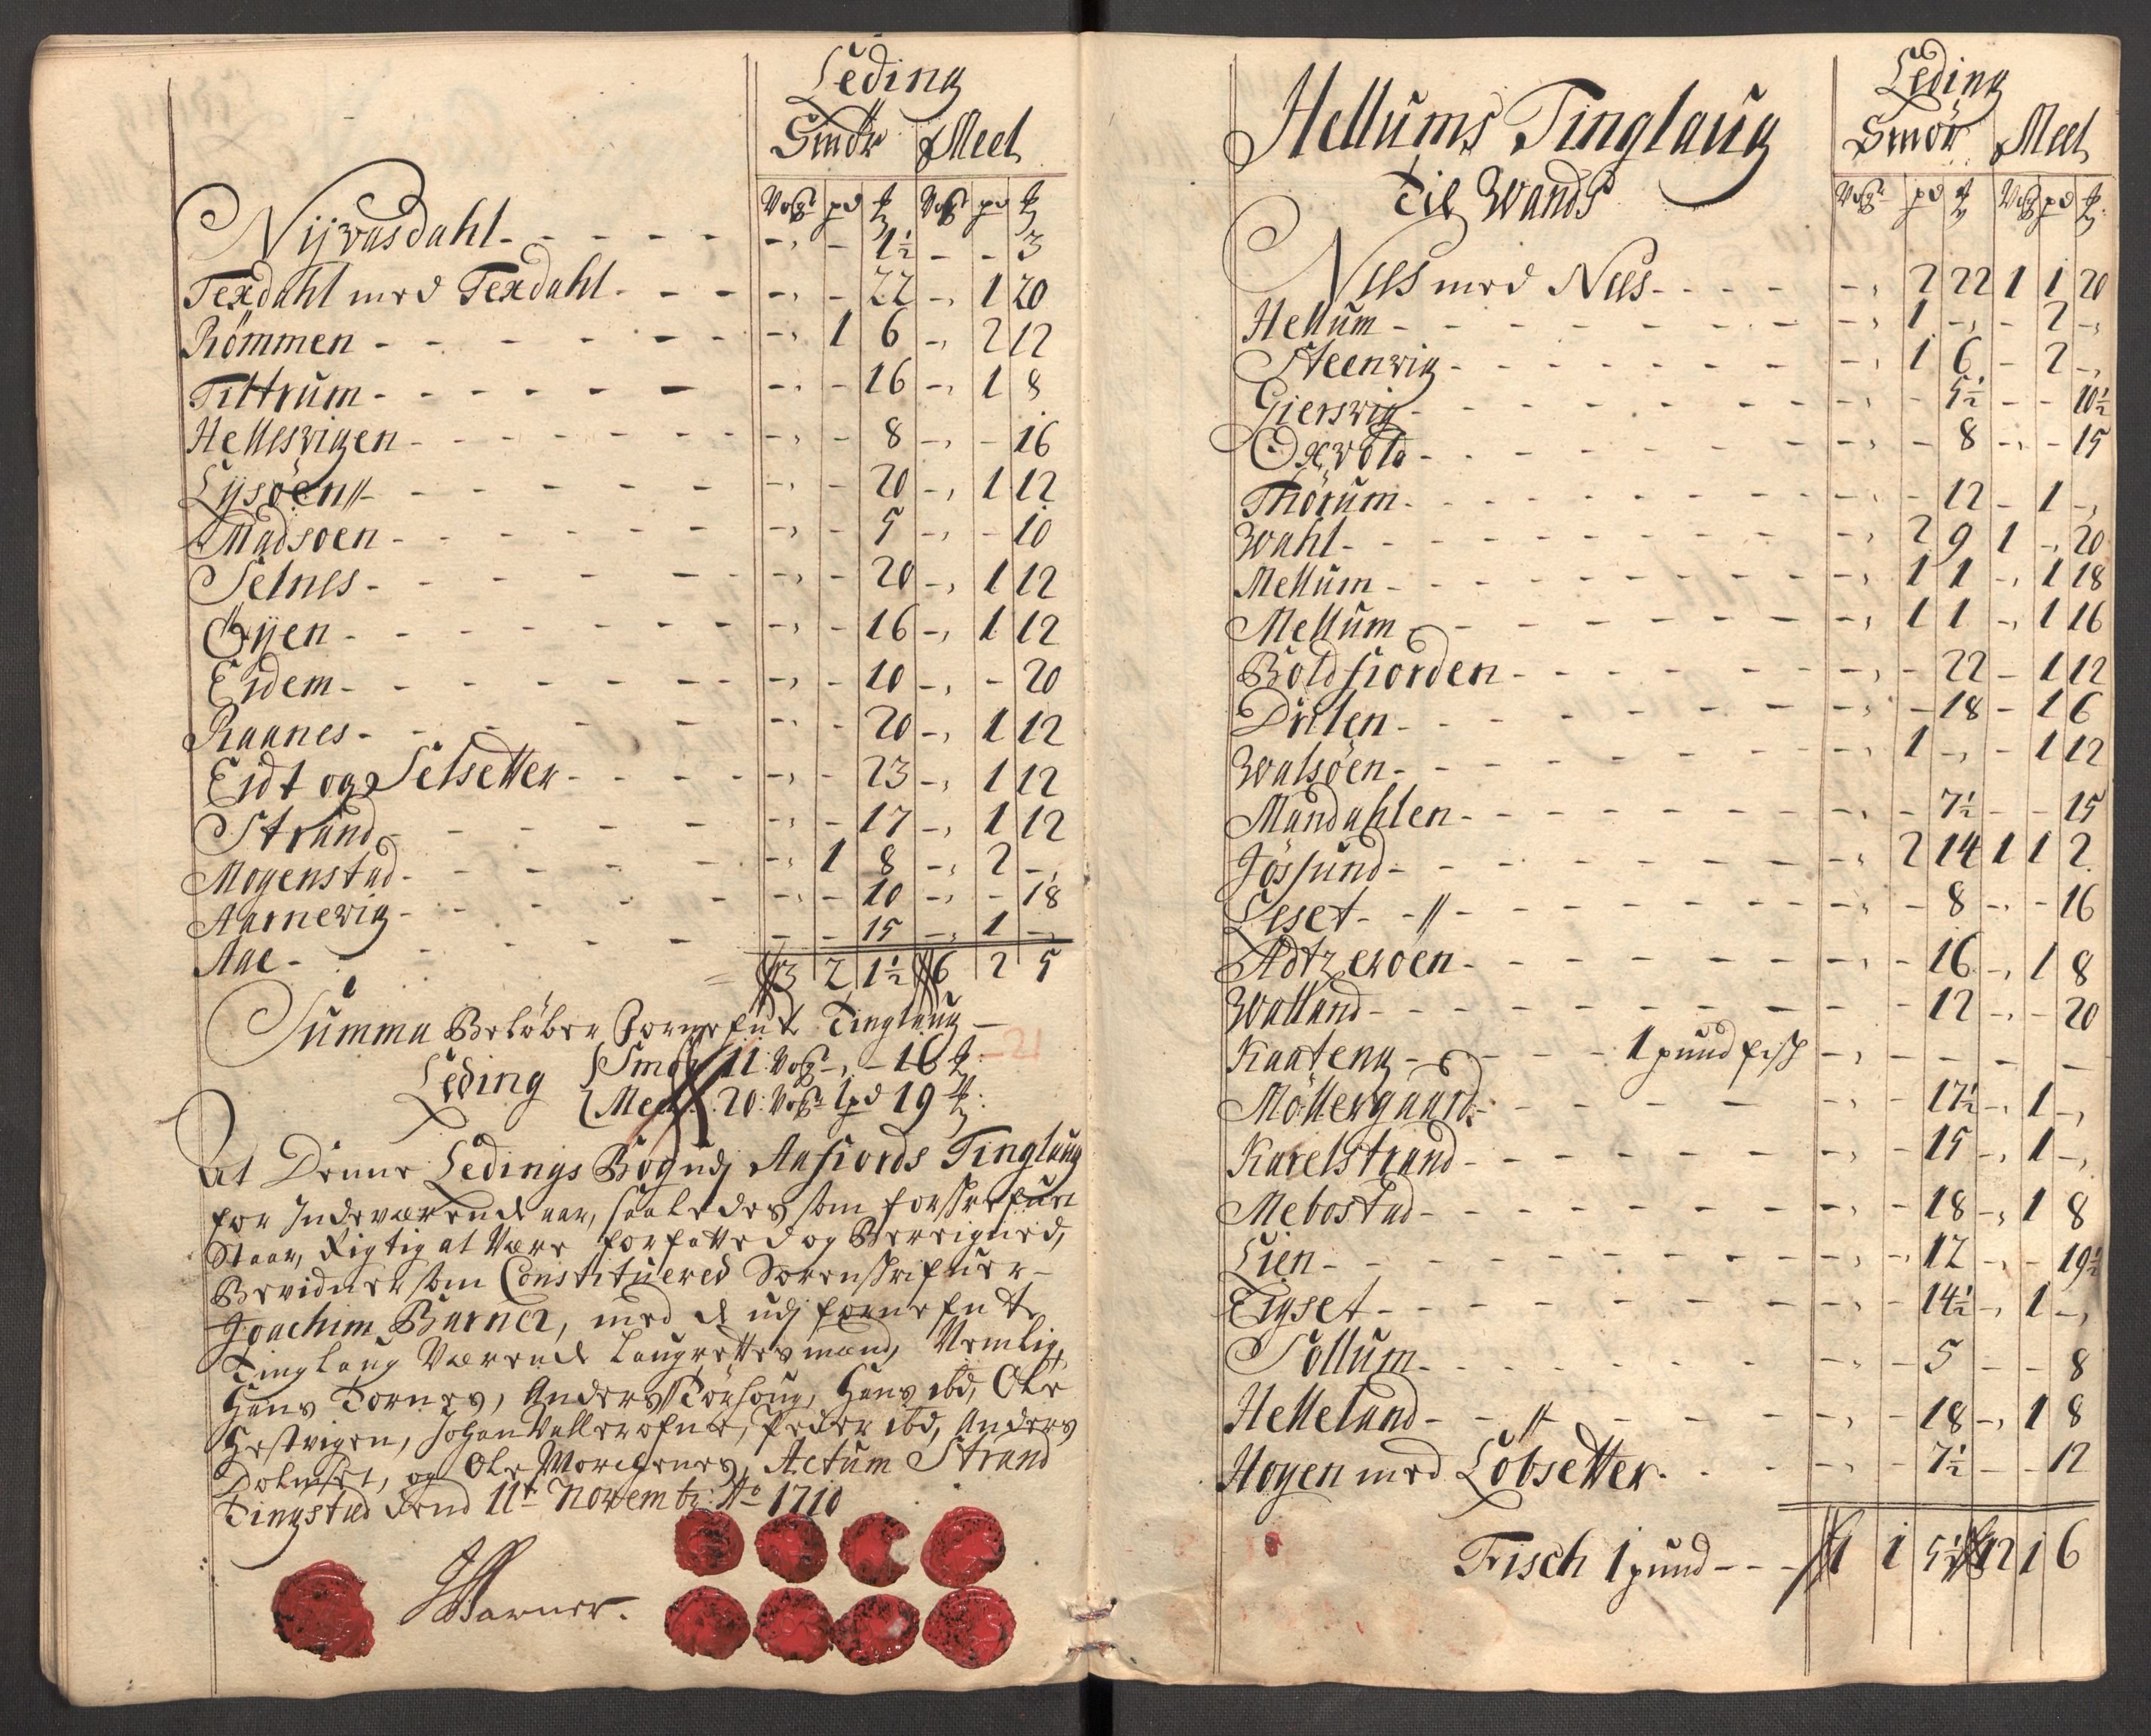 Leding
Smör Meel
Vog pd ℔ Vog pd ℔
Nijvasdahl - - - 1½ - - 3
Texdahl med Texdahl - - - 22 - 1 20
Römmen - - 1 6 - 2 12
Tittrum - - - 16 - 1 8
Hellesvigen - - - 8 - - 16
Lysöen - - - 20 - 1 12
Madsoen - - - 5 - - 10
Selnes - - - 20 - 1 12
Öyen - - - 16 - 1 12
Eidem - - - 10 - - 20
Raanes - - - 20 - 1 12
Eidt og Selsetter - - - 23 - 1 12
Strand - - - 17 - 1 12
Mogenstad - - 1 8 - 2 -
Aarnevig - - - 10 - - 18
Aae - - - 15 - 1 -
3 2 1½ 6 2 5
Summa Belöber Fornefnte Tinglaug
Leding Smör 11 Vog - - 16 ℔
Meel 20 Vog 1 pd 19 ℔
21
At Denne Ledings Bog udj Aafiords Tinglaug
for Indeværende aar, saaledes som forskrefuet
Staar, Rigtig at Være forfatted og Beregned,
Bevidner som Constituered Sorenskrifuer
Joachim Barner, med de udj fornefnte
Tinglaug Værende Laugrettesmænd, Nemlig,
Hans Tornes, Anders Törhoug, Hans ibd, Ole
Hestvigen, Johan Vallersfne, Peder ibd, Anders
Dolmset, og Ole Moresenes, Actum Strand
Tingstad dend 11t Novembr: Ao 1710
JBarner.
Hellums Tinglaug
Til Wands
Leding
Smör Meel
Vog pd ℔ Vog pd ℔
Nes med Nes - - 2 22 1 1 20
Hellum - - 1 - - 2 -
Steenvig - - 1 6 - 2 -
Giersvig - - - 5½ - - 10½
Oxvold - - - 8 - - 15
Thorum - - - 12 - 1 -
Wahl - - 2 9 1 - 20
Mellum - - 1 1 - 1 18
Mellum - - 1 1 - 1 16
Boldfiorden - - - 22 - 1 12
Dielen - - - 18 - 1 6
Walsöen - - 1 - - 1 12
Mandahlen - - - 7½ - - 15
Jössund - - 2 14 1 1 2
Leset - - - 8 - - 16
Adtzeroen - - - 16 - 1 8
Walland - - - 12 - - 20
Kaateng - 1 pund fisk - - - - -
Möllergaard - - - 17½ - 1 -
Karelstrand - - - 15 - 1 -
Mebostad - - - 18 - 1 8
Lien - - - 12 - - 19½
Eigset - - - 14½ - 1 -
Sollum - - - 5 - - 8
Helleland - - - 18 - 1 8
Hoyen med Löbsetter - - - 7½ - - 12
Fisch 1 pund - - - 1 5½ 12 1 6